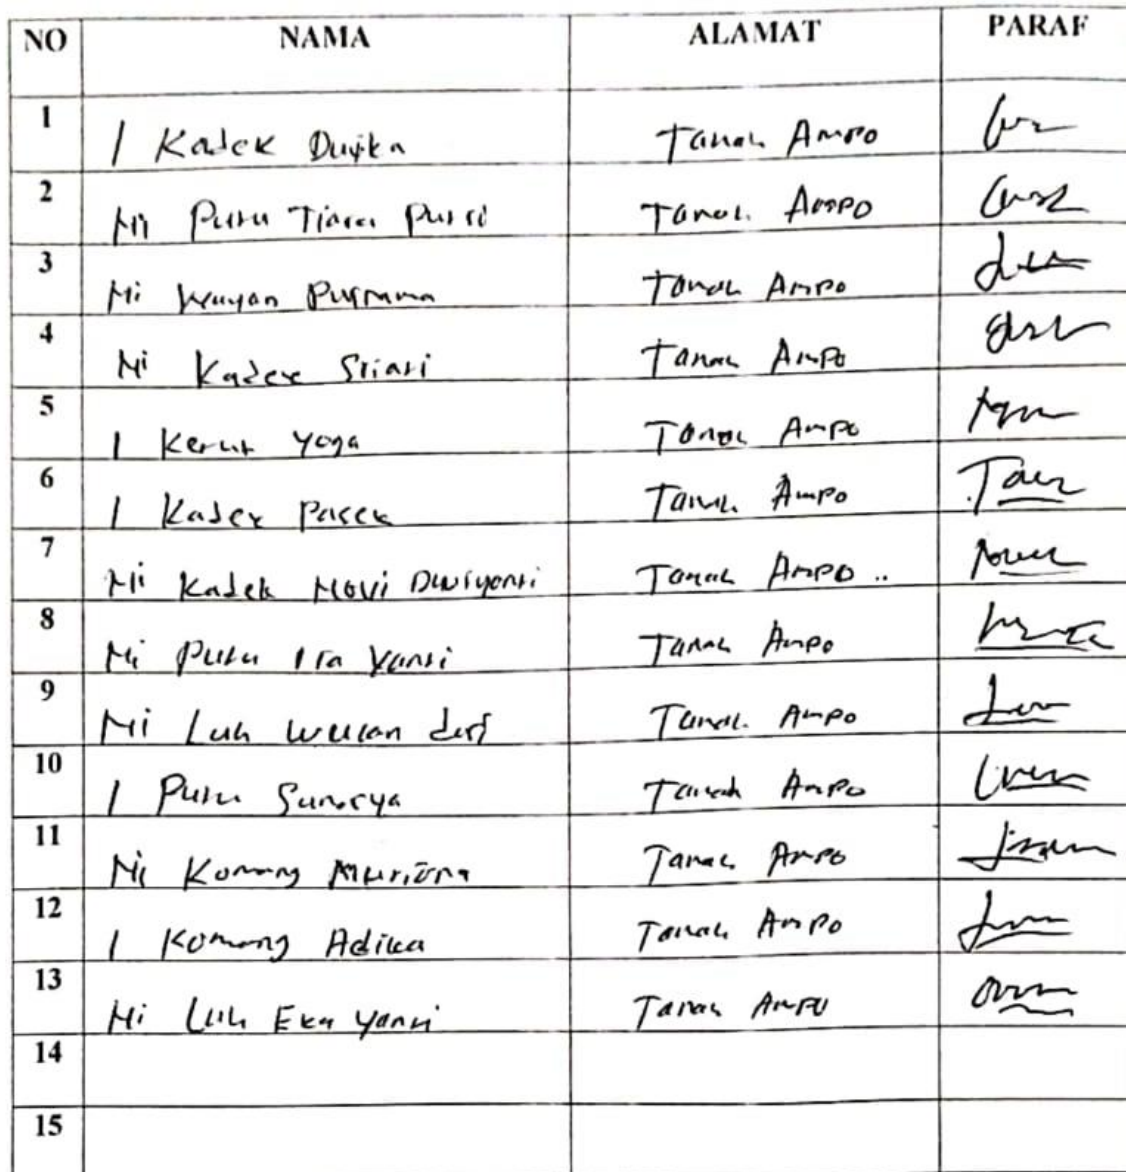 NO NAMA ALAMAT PARAF
1 I Kadek Duyka Tanah Ampo
2 Ni Putu Tiara Putri Tanah Ampo
3 Ni Wayan Purnama Tanah Ampo
4 Ni Kadek Stiari Tanah Ampo
5 I Ketut Yoga Tanah Ampo
6 I Kadek Pasek Tanah Ampo
7 Ni Kadek Novi Dwiyanti Tanah Ampo ..
8 Ni Putu Ita Yanti Tanah Ampo
9 Ni Luh Wulan Tanah Ampo
10 I Putu Tanah Ampo
11 Ni Komang Tanah Ampo
12 I Komang Adika Tanah Ampo
13 Ni Luh Eka Yanti Tanah Ampo
14
15